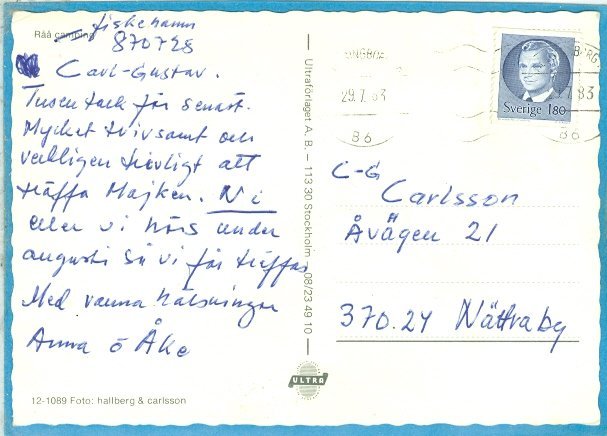 Råå camping
fiskehamn
870728
Carl-Gustav.
Tusen tack för senast.
Mycket trivsamt och
verkligen trevligt att
träffa Majken. Ni
eller vi hörs under
augusti så vi får träffas
Med varma hälsningar
Anna o Åke
12-1089 Foto: hallberg & carlsson
Ultraförlaget A. B. — 113 30 Stockholm 08/23 49 10
ULTRA
29.7.83
B6
7.83
B6
Sverige 180
C-G
Carlsson
Åvägen 21
370.24 Nättraby